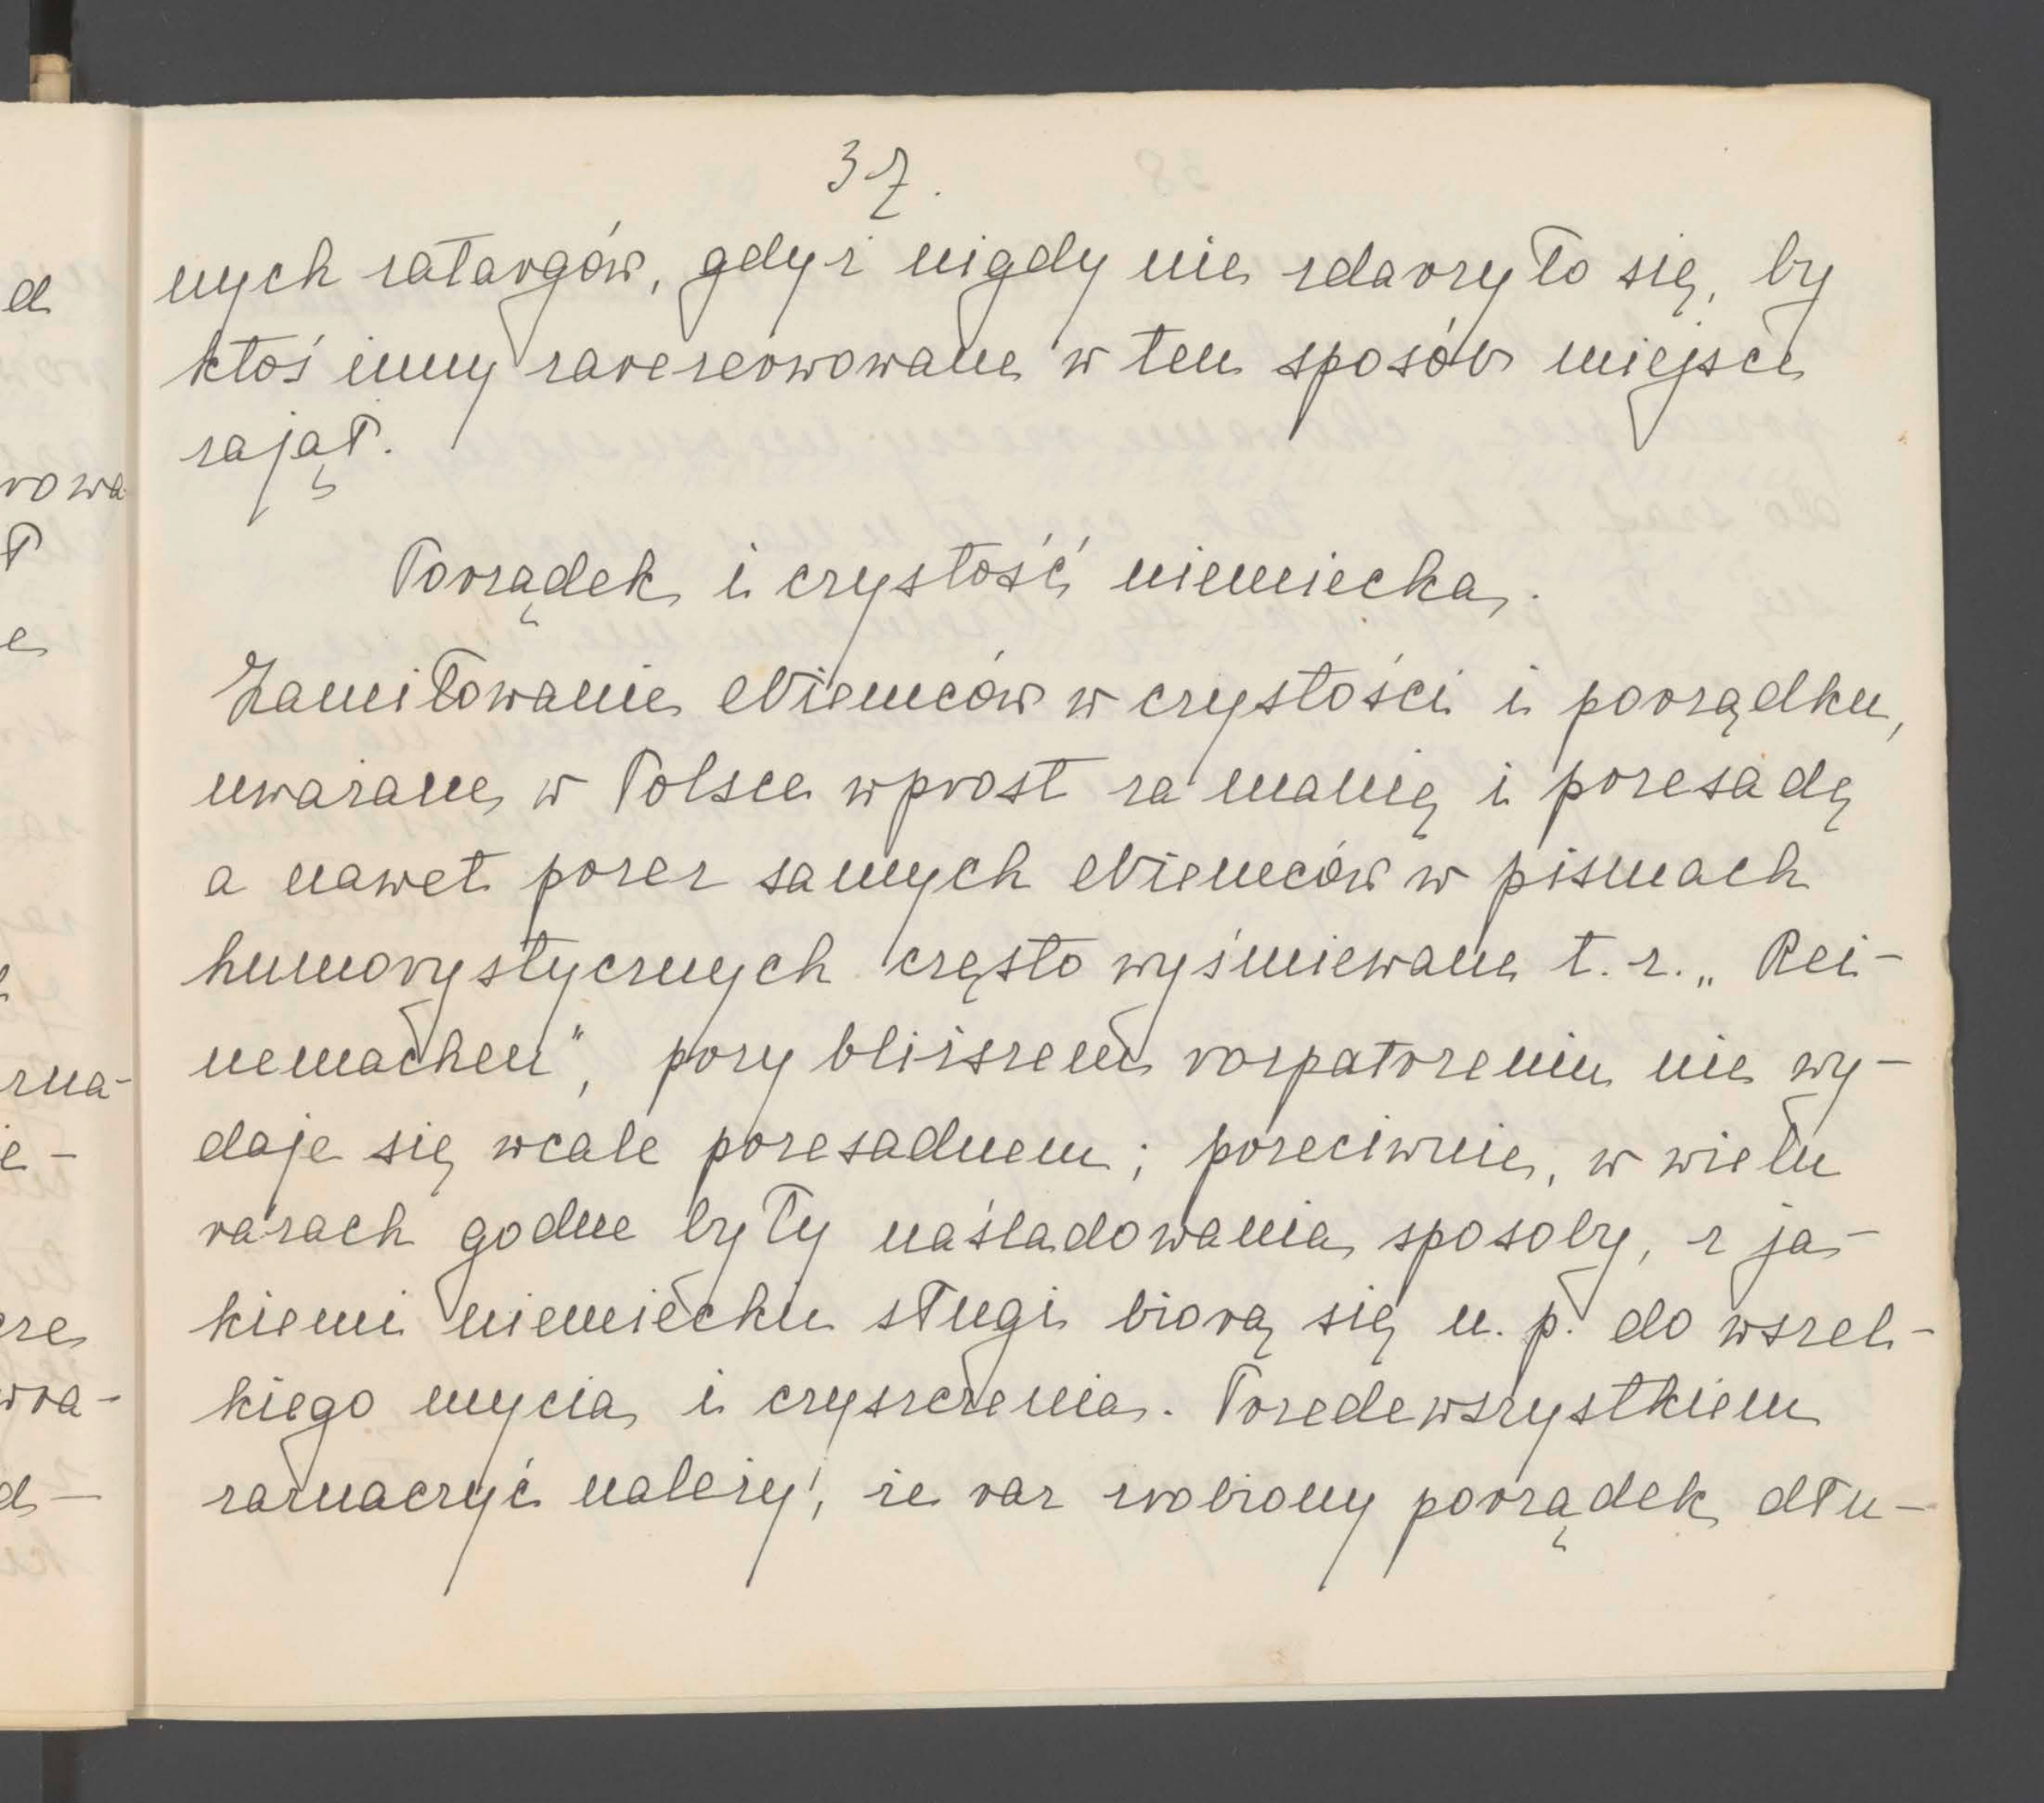 37.
nych zatargów, gdyż nigdy nie zdarzyło się, by
ktoś inny zarezerwowane w ten sposób miejsce
zajął.
Porządek i czystość niemiecka.
Zamiłowanie Niemców w czystości i porządku,
uważane w Polsce wprost za manię i przesadę
a nawet przez samych Niemców w pismach
humorystycznych często wyśmiewane t. z. „Rei-
nemachen", przy bliższem rozpatrzeniu nie wy-
daje się wcale przesadnem; przeciwnie, w wielu
razach godne były naśladowania sposoby, z ja-
kiemi niemieckie sługi biorą się n. p. do wszel-
kiego mycia i czyszczenia. Przedewszystkiem
zaznaczyć należy, że raz zrobiony porządek dłu-
d
rowa
ł
e
zna-
ie-
cze
wra-
d-